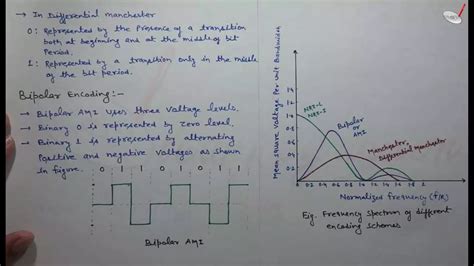 → In Differential manchester
0: Represented by the Presence of a transition
both at beginning and at the middle of bit
Period.
1: Represented by a transition only in the middle
of the bit period.
Bipolar Encoding:-
→ Bipolar AMI uses three voltage levels.
→ Binary 0 is represented by zero level.
→ Binary 1 is represented by alternating
Positive and negative voltages as shown
in figure.
0 1 0 1 1 0 1
Bipolar AMI
Mean square voltage Per unit Bandwidth
NRZ-L
NRZ-I
Bipolar
or
AMI
Manchester,
Differential Manchester
Normalized frequency (f/R)
Fig. Frequency spectrum of different
encoding schemes